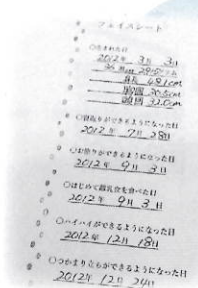 フェイスシート
○生まれた日
2012年 3月 3日
身長 48.1cm
胸囲 30.5cm
頭囲 32.0cm
○寝返りができるようになった日
2012年 7月 28日
○お座りができるようになった日
2012年 9月 3日
○はじめて離乳食を食べた日
2012年 9月 3日
○ハイハイができるようになった日
2012年 12月 18日
○つかまり立ちができるようになった日
2012年 12月 24日